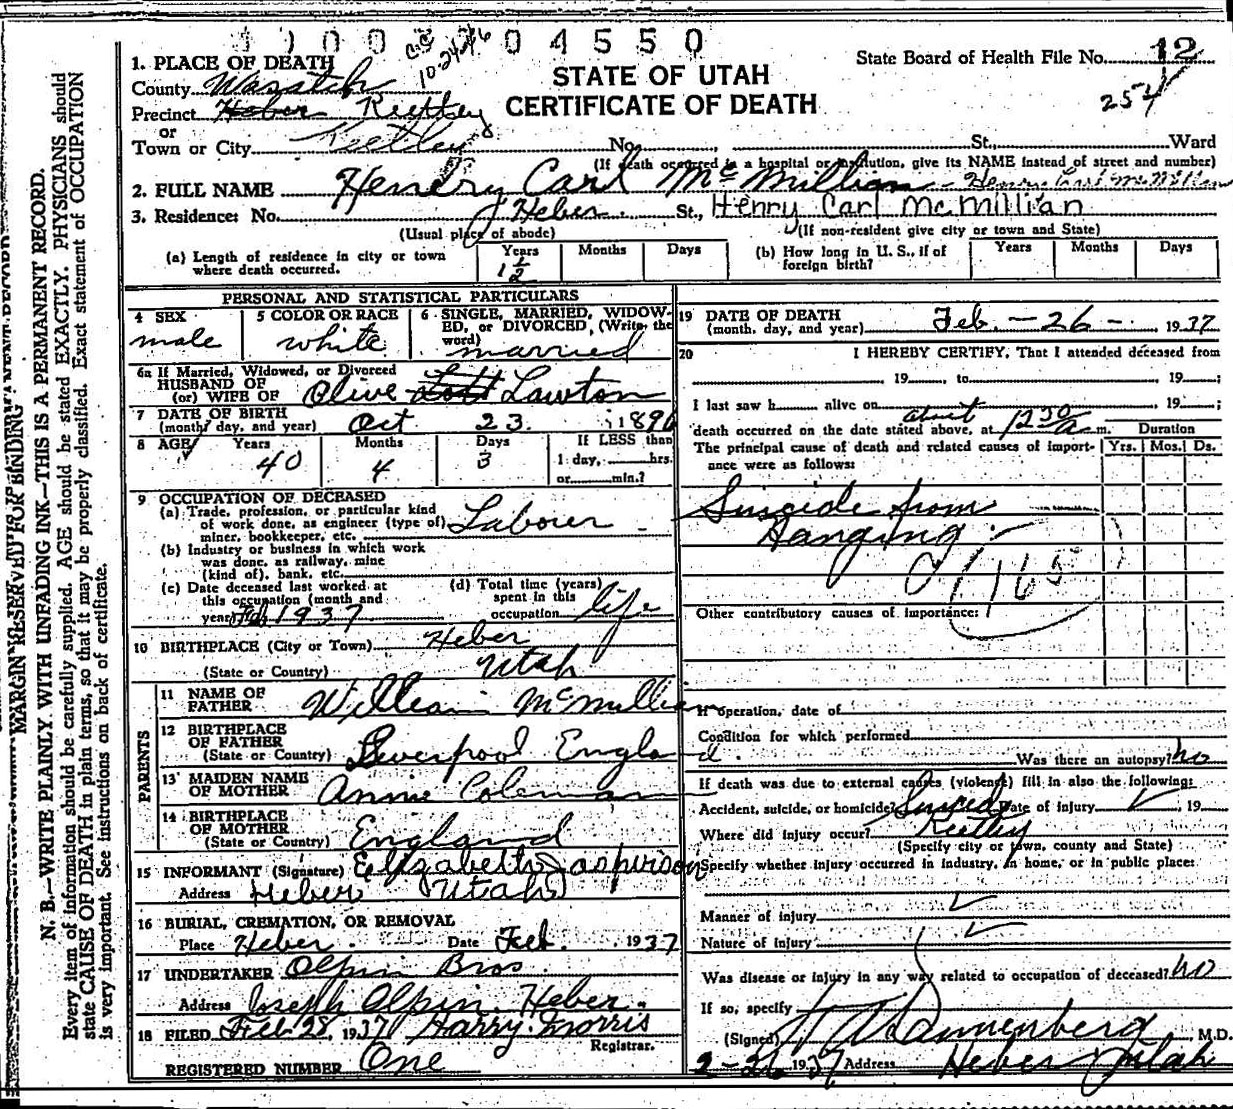 1 1 0 0 0 4 5 5 0
C.C. 10-24-46
State Board of Health File No. 12
254
STATE OF UTAH
CERTIFICATE OF DEATH
1. PLACE OF DEATH
County Wasatch
Precinct Heber Keetley
or
Town or City Keetley No. , St., Ward
(If death occurred in a hospital or institution, give its NAME instead of street and number)
2. FULL NAME Henery Carl McMillian - Henry Carl McMillan
3. Residence: No. Heber St., Henry Carl McMillian
(Usual place of abode) (If non-resident give city or town and State)
(a) Length of residence in city or town where death occurred. Years 1 1/2 Months Days
(b) How long in U. S., if of foreign birth? Years Months Days
PERSONAL AND STATISTICAL PARTICULARS
4 SEX male
5 COLOR OR RACE white
6 SINGLE, MARRIED, WIDOWED, or DIVORCED, (Write the word) married
6a If Married, Widowed, or Divorced
HUSBAND OF
(or) WIFE OF Olive Lott Lawton
7 DATE OF BIRTH
(month, day, and year) Oct 23. 1896
8 AGE Years 40 Months 4 Days 3 If LESS than 1 day, hrs. or min.?
9 OCCUPATION OF DECEASED
(a) Trade, profession, or particular kind
of work done, as engineer (type of)
miner, bookkeeper, etc. Laborer
(b) Industry or business in which work
was done, as railway, mine
(kind of), bank, etc.
(c) Date deceased last worked at
this occupation (month and
year) Feb 1937
(d) Total time (years)
spent in this
occupation life
10 BIRTHPLACE (City or Town) Heber
(State or Country) Utah
PARENTS
11 NAME OF
FATHER William McMillian
12 BIRTHPLACE
OF FATHER
(State or Country) Liverpool England.
13 MAIDEN NAME
OF MOTHER Annie Coleman
14 BIRTHPLACE
OF MOTHER
(State or Country) England
15 INFORMANT (Signature) Elizabeth
Address Heber Utah
16 BURIAL, CREMATION, OR REMOVAL
Place Heber. Date Feb. 1937
17 UNDERTAKER Olpin Bros.
Address Joseph Olpin Heber.
18 FILED Feb 28, 1937 Harry Morris
Registrar.
REGISTERED NUMBER One
19 DATE OF DEATH
(month, day, and year) Feb. - 26 - 1937
20 I HEREBY CERTIFY, That I attended deceased from
, 19 , to , 19 ;
I last saw h alive on , 19 ;
death occurred on the date stated above, at about 12 30/a m. Duration
The principal cause of death and related causes of importance were as follows: Yrs. Mos. Ds.
Suicide from
Hanging
165
Other contributory causes of importance:
If operation, date of
Condition for which performed
Was there an autopsy? no
If death was due to external causes (violence) fill in also the following:
Accident, suicide, or homicide? Suicide Date of injury ✓ 19
Where did injury occur? Keetley
(Specify city or town, county and State)
Specify whether injury occurred in industry, in home, or in public place:
Manner of injury
Nature of injury
Was disease or injury in any way related to occupation of deceased? no
If so, specify
(Signed) Dannenberg, M.D.
2-26 1937 Address Heber Utah
MARGIN RESERVED FOR BINDING
N. B.—WRITE PLAINLY, WITH UNFADING INK—THIS IS A PERMANENT RECORD.
Every item of information should be carefully supplied. AGE should be stated EXACTLY. PHYSICIANS should
state CAUSE OF DEATH in plain terms, so that it may be properly classified. Exact statement of OCCUPATION
is very important. See instructions on back of certificate.